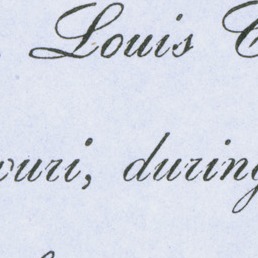 Louis
ouri, during